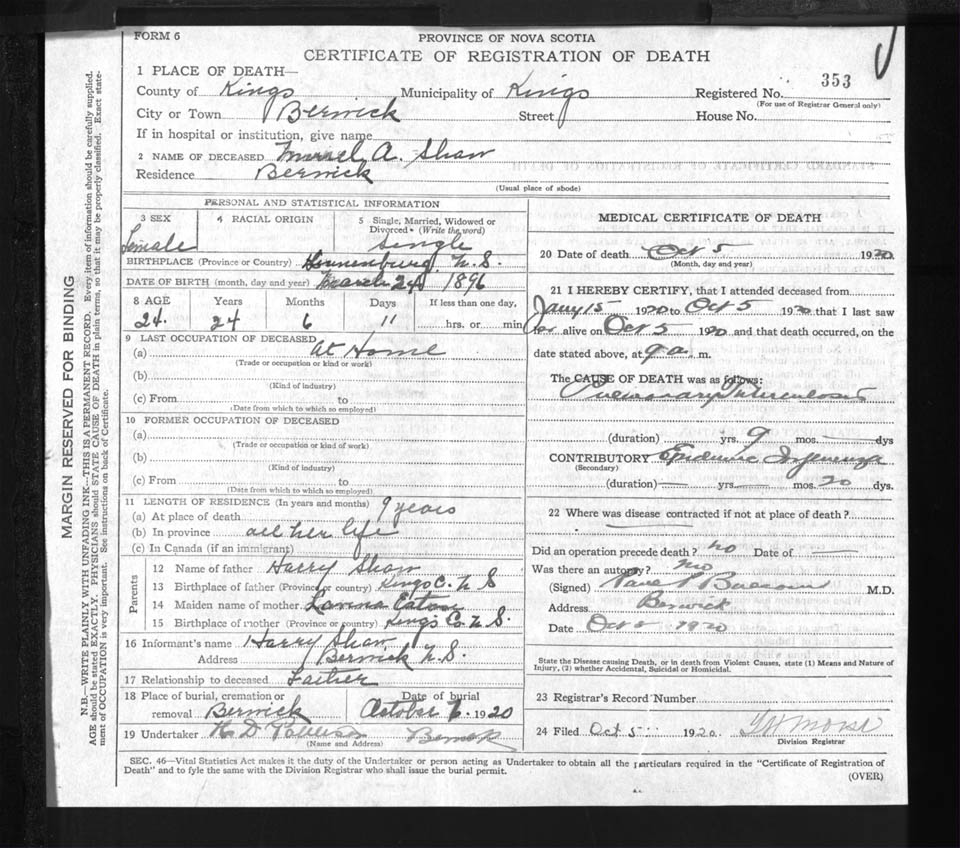 FORM 6
PROVINCE OF NOVA SCOTIA
CERTIFICATE OF REGISTRATION OF DEATH
1 PLACE OF DEATH—
353
County of Kings Municipality of Kings Registered No.
(For use of Registrar General only)
City or Town Berwick Street House No.
If in hospital or institution, give name
2 NAME OF DECEASED A. Shaw
Residence Berwick
(Usual place of abode)
PERSONAL AND STATISTICAL INFORMATION
3 SEX 4 RACIAL ORIGIN 5 Single, Married, Widowed or Divorced (Write the word)
Female Single
BIRTHPLACE (Province or Country) Lunenburg, N. S.
DATE OF BIRTH (month, day and year) March 24 1896
8 AGE Years Months Days If less than one day,
24. 24 6 11 hrs. or min
9 LAST OCCUPATION OF DECEASED
(a) At Home
(Trade or occupation or kind or work)
(b)
(Kind of industry)
(c) From to
(Date from which to which so employed)
10 FORMER OCCUPATION OF DECEASED
(a)
(Trade or occupation or kind of work)
(b)
(Kind of industry)
(c) From to
(Date from which to which so employed)
11 LENGTH OF RESIDENCE (In years and months)
(a) At place of death 9 years
(b) In province all her life
(c) In Canada (if an immigrant)
Parents
12 Name of father Harry Shaw
13 Birthplace of father (Province or country) Kings C. N S
14 Maiden name of mother Eaton
15 Birthplace of mother (Province or country) Kings Co. N. S.
16 Informant's name Harry Shaw
Address Berwick N.S.
17 Relationship to deceased Father
18 Place of burial, cremation or removal Berwick
Date of burial October 6. 1920
19 Undertaker Berwick
(Name and Address)
MEDICAL CERTIFICATE OF DEATH
20 Date of death Oct 5 1920
(Month, day and year)
21 I HEREBY CERTIFY, that I attended deceased from
Jany 15 1920 to Oct 5 1920 that I last saw
her alive on Oct 5 1920 and that death occurred, on the
date stated above, at 9 a. m.
The CAUSE OF DEATH was as follows:
Pulmonary Tuberculosis
(duration) yrs. 9 mos. — dys
CONTRIBUTORY Epidemic Influenza
(Secondary)
(duration) — yrs. — mos. 20 dys.
22 Where was disease contracted if not at place of death?
Did an operation precede death? no Date of —
Was there an autopsy? no
(Signed) M.D.
Address Berwick
Date Oct 5 1920
State the Disease causing Death, or in death from Violent Causes, state (1) Means and Nature of
Injury, (2) whether Accidental, Suicidal or Homicidal.
23 Registrar's Record Number
24 Filed Oct 5 1920 Morse
Division Registrar
SEC. 46—Vital Statistics Act makes it the duty of the Undertaker or person acting as Undertaker to obtain all the particulars required in the "Certificate of Registration of
Death" and to fyle the same with the Division Registrar who shall issue the burial permit.
(OVER)
MARGIN RESERVED FOR BINDING
N.B.—WRITE PLAINLY WITH UNFADING INK—THIS IS A PERMANENT RECORD. Every item of information should be carefully supplied.
AGE should be stated EXACTLY. PHYSICIANS should STATE CAUSE OF DEATH in plain terms, so that it may be properly classified. Exact state-
ment of OCCUPATION is very important. See instructions on back of Certificate.